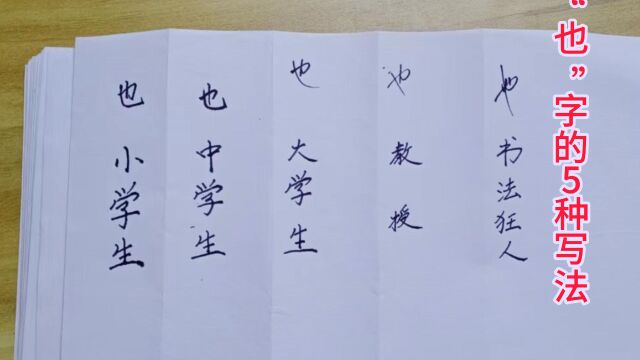 也小学生
也中学生
也大学生
也教授
也书法狂人
“也”字的5种写法